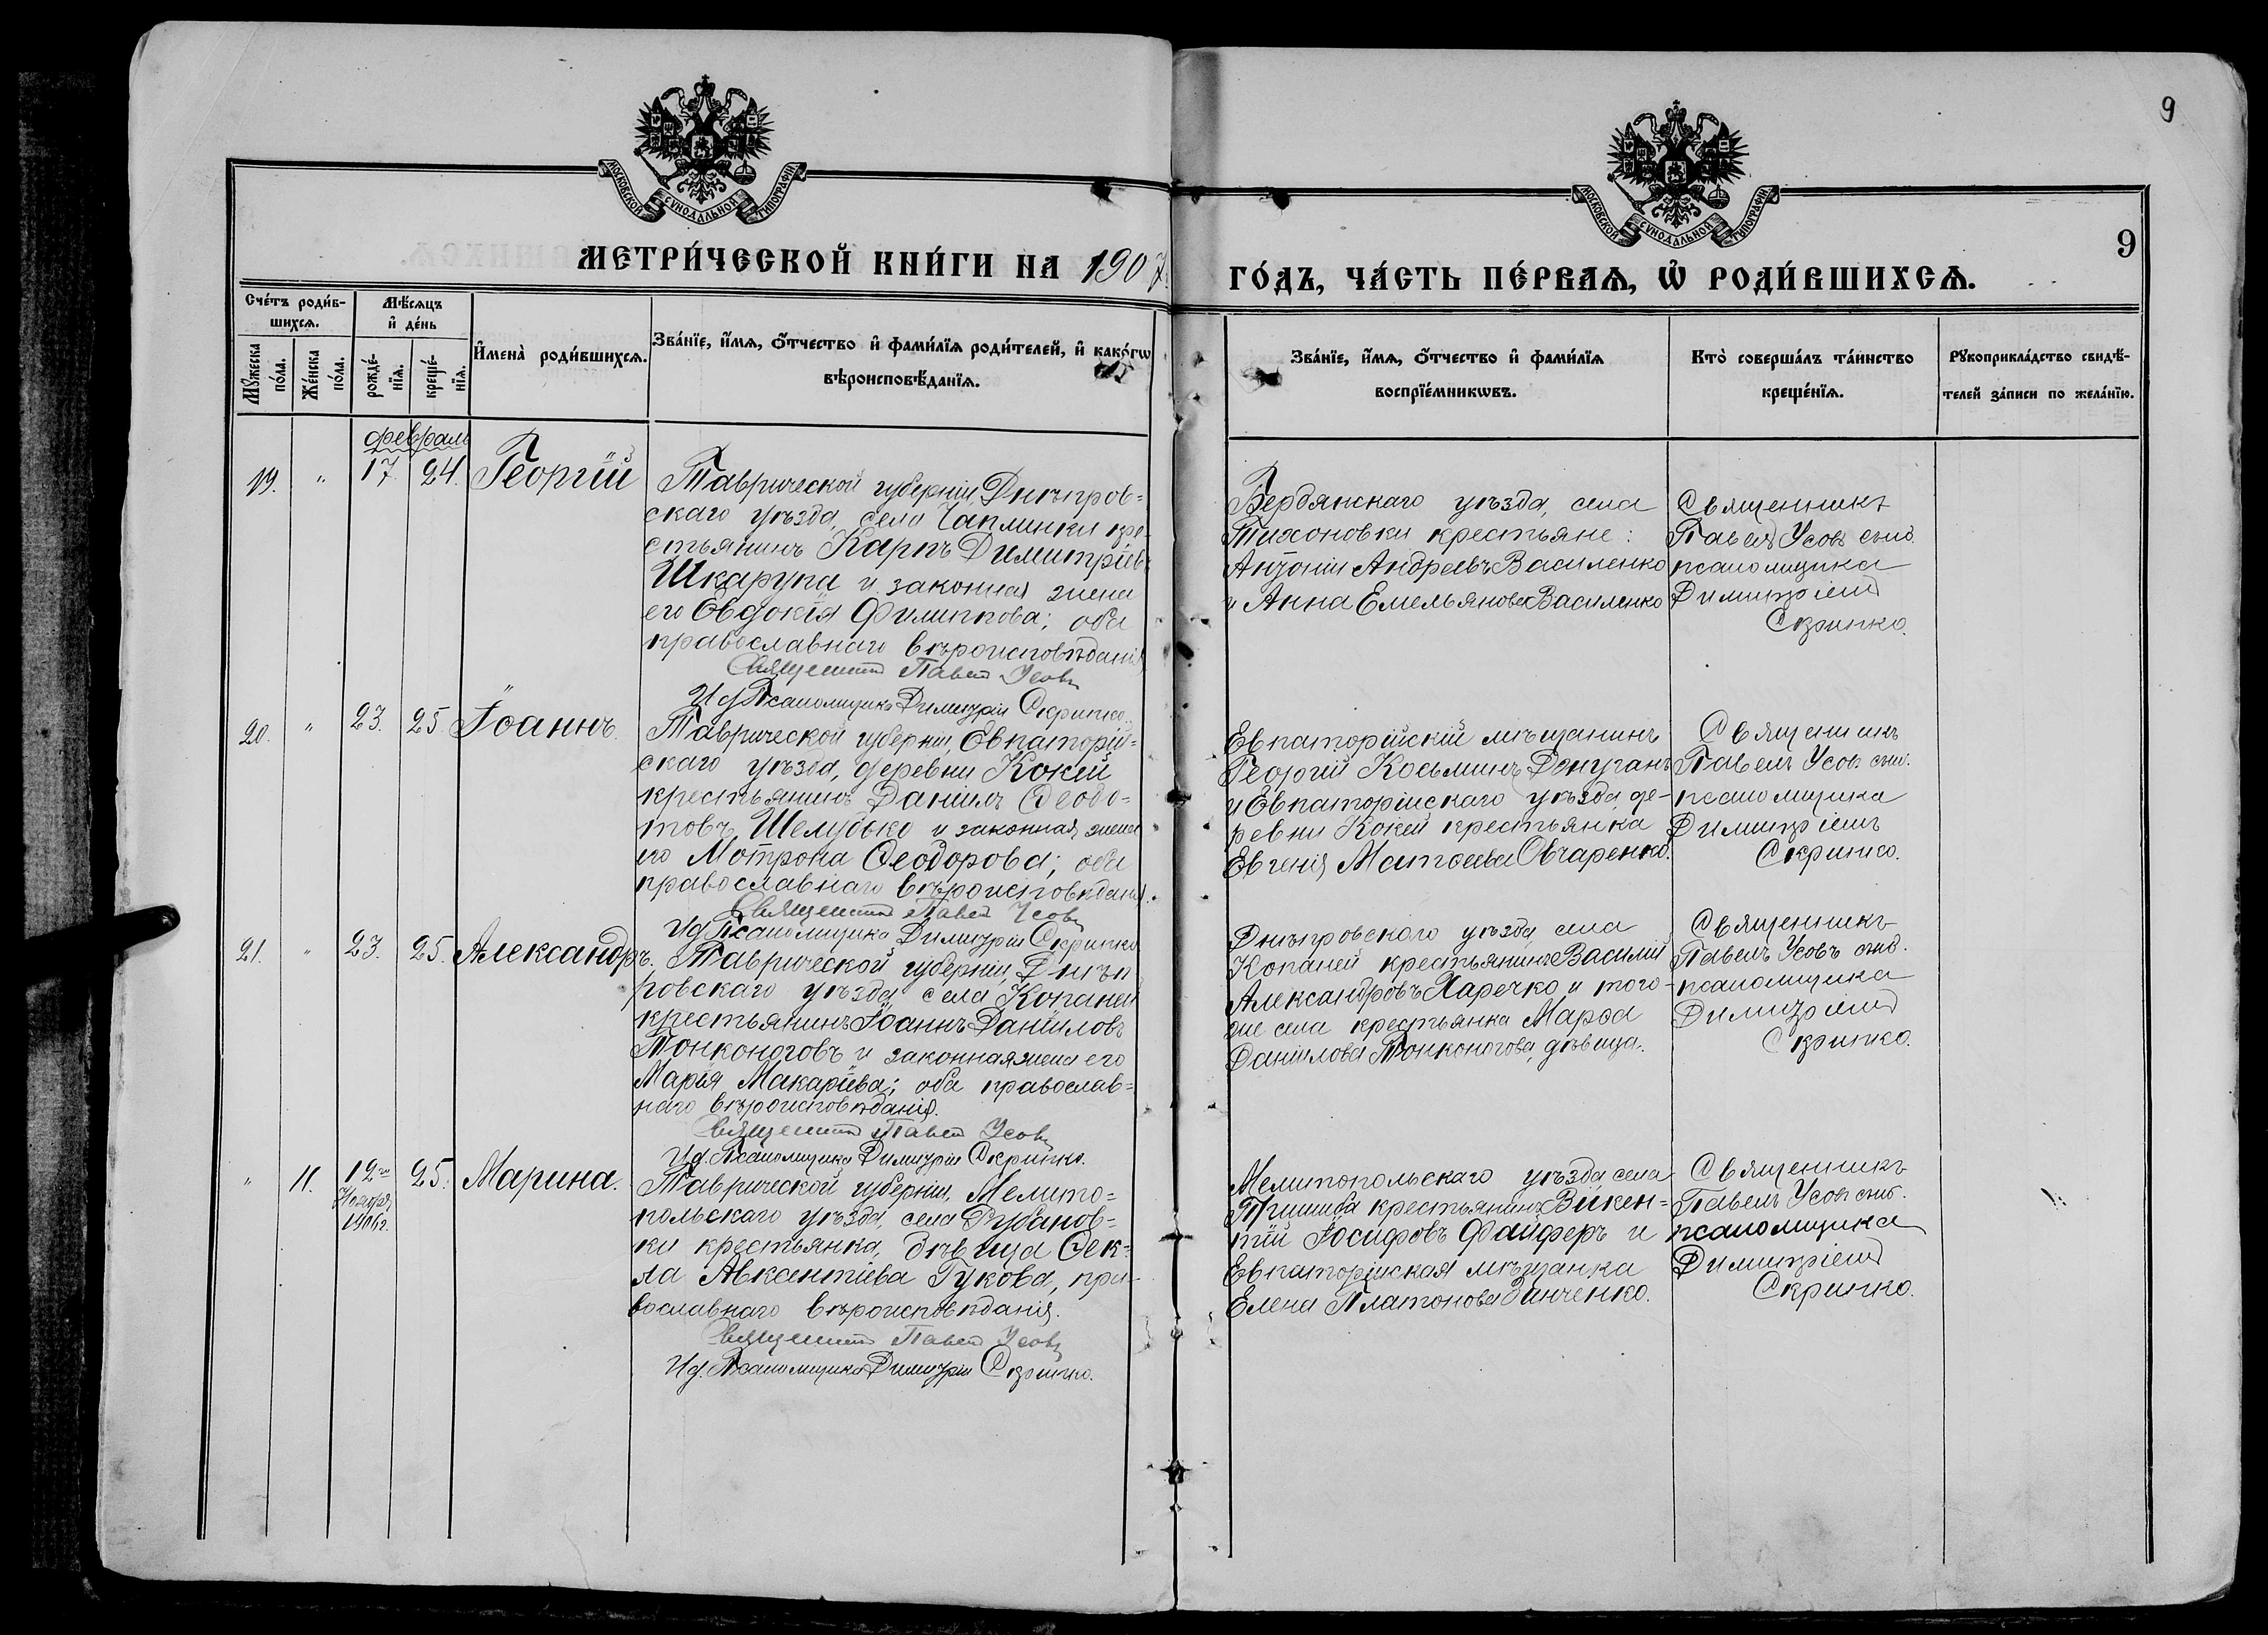 9
МОСКОВСКОЙ СѴНОДАЛЬНОЙ ТИПОГРАФІИ
МОСКОВСКОЙ СѴНОДАЛЬНОЙ ТИПОГРАФІИ
МЕТРИ́ЧЕСКОЙ КНИ́ГИ НА 1907
ГО́ДЪ, ЧА́СТЬ ПЕ́РВАѦ, Ѡ҆ РОДИ́ВШИХСѦ.
9
Сче́тъ роди́в-
шихсѧ.
Мꙋ́жеска по́ла.
Же́нска по́ла.
Мѣ́сѧцъ
и҆ де́нь
рожде́-
нїѧ.
креще́-
нїѧ.
И҆мена̀ роди́вшихсѧ.
Зва́нїе, и҆́мѧ, ѻ҆́тчество и҆ фами́лїѧ роди́телей, и҆ како́гѡ
вѣроисповѣ́данїѧ.
Зва́нїе, и҆́мѧ, ѻ҆́тчество и҆ фами́лїѧ
воспрїе́мникѡвъ.
Кто̀ соверша́лъ та́инство
креще́нїѧ.
Рꙋкоприкла́дство свидѣ́-
телей за́писи по жела́нїю.
Февраль
19. " 17. 24. Георгій
Таврической губерніи, Днѣпров=
скаго уѣзда, села Чаплинки кре-
стьянинъ Карпъ Димитріевъ
Шкарупа и законная жена
его Евдокія Филиппова; оба
православнаго вѣроисповѣданія
Священникъ Павелъ Усовъ
И д. Псаломщика Димитрій Скрипко.
Бердянскаго уѣзда, села
Тихоновки крестьяне:
Антоній Андреевъ Василенко
и Анна Емельянова Василенко
Священникъ
Павелъ Усовъ съ и д.
псаломщика
Димитріемъ
Скрипко.
20. " 23. 25 Іоаннъ.
Таврической губерніи, Евпаторій=
скаго уѣзда, деревни Кокей
крестьянинъ Даніилъ Ѳеодо=
товъ Шелудько и законная жена
его Мотрона Ѳеодорова; оба
православнаго вѣроисповѣданія.
Священникъ Павелъ Усовъ
И д. Псаломщика Димитрій Скрипко
Евпаторійскій мѣщанинъ
Георгій Косьминъ
и Евпаторійскаго уѣзда, де-
ревни Кокей крестьянка
Евгенія Матѳеева Овчаренко.
Священникъ
Павелъ Усовъ съ и д.
псаломщика
Димитріемъ
Скрипко.
21. " 23. 25. Александръ.
Таврической губерніи, Днѣп
ровскаго уѣзда, села Копаней
крестьянинъ Іоаннъ Даніиловъ
Тонконоговъ и законная жена его
Марья Макаріева; оба православ=
наго вѣроисповѣданія.
Священникъ Павелъ Усовъ
И д. Псаломщика Димитрій Скрипко.
Днѣпровскаго уѣзда, села
Копаней крестьянинъ Василій
Александровъ Харечко и того-
же села крестьянка Марѳа
Даніилова Тонконогова, дѣвица.
Священникъ
Павелъ Усовъ съ и д.
псаломщика
Димитріемъ
Скрипко.
" 11. 12го 25. Марина.
Ноября
1906 г.
Таврической губерніи, Мелито=
польскаго уѣзда, села Рубанов=
ки крестьянка, дѣвица Ѳек=
ла Авксентіева Гукова, пра-
вославнаго вѣроисповѣданія.
Священникъ Павелъ Усовъ
И д. Псаломщика Димитрій Скрипко.
Мелитопольскаго уѣзда, села
Пришиба крестьянинъ Викен=
тій Іосифовъ Файферъ и
Евпаторійская мѣщанка
Елена Платонова Зинченко.
Священникъ
Павелъ Усовъ съ и д.
псаломщика
Димитріемъ
Скрипко.